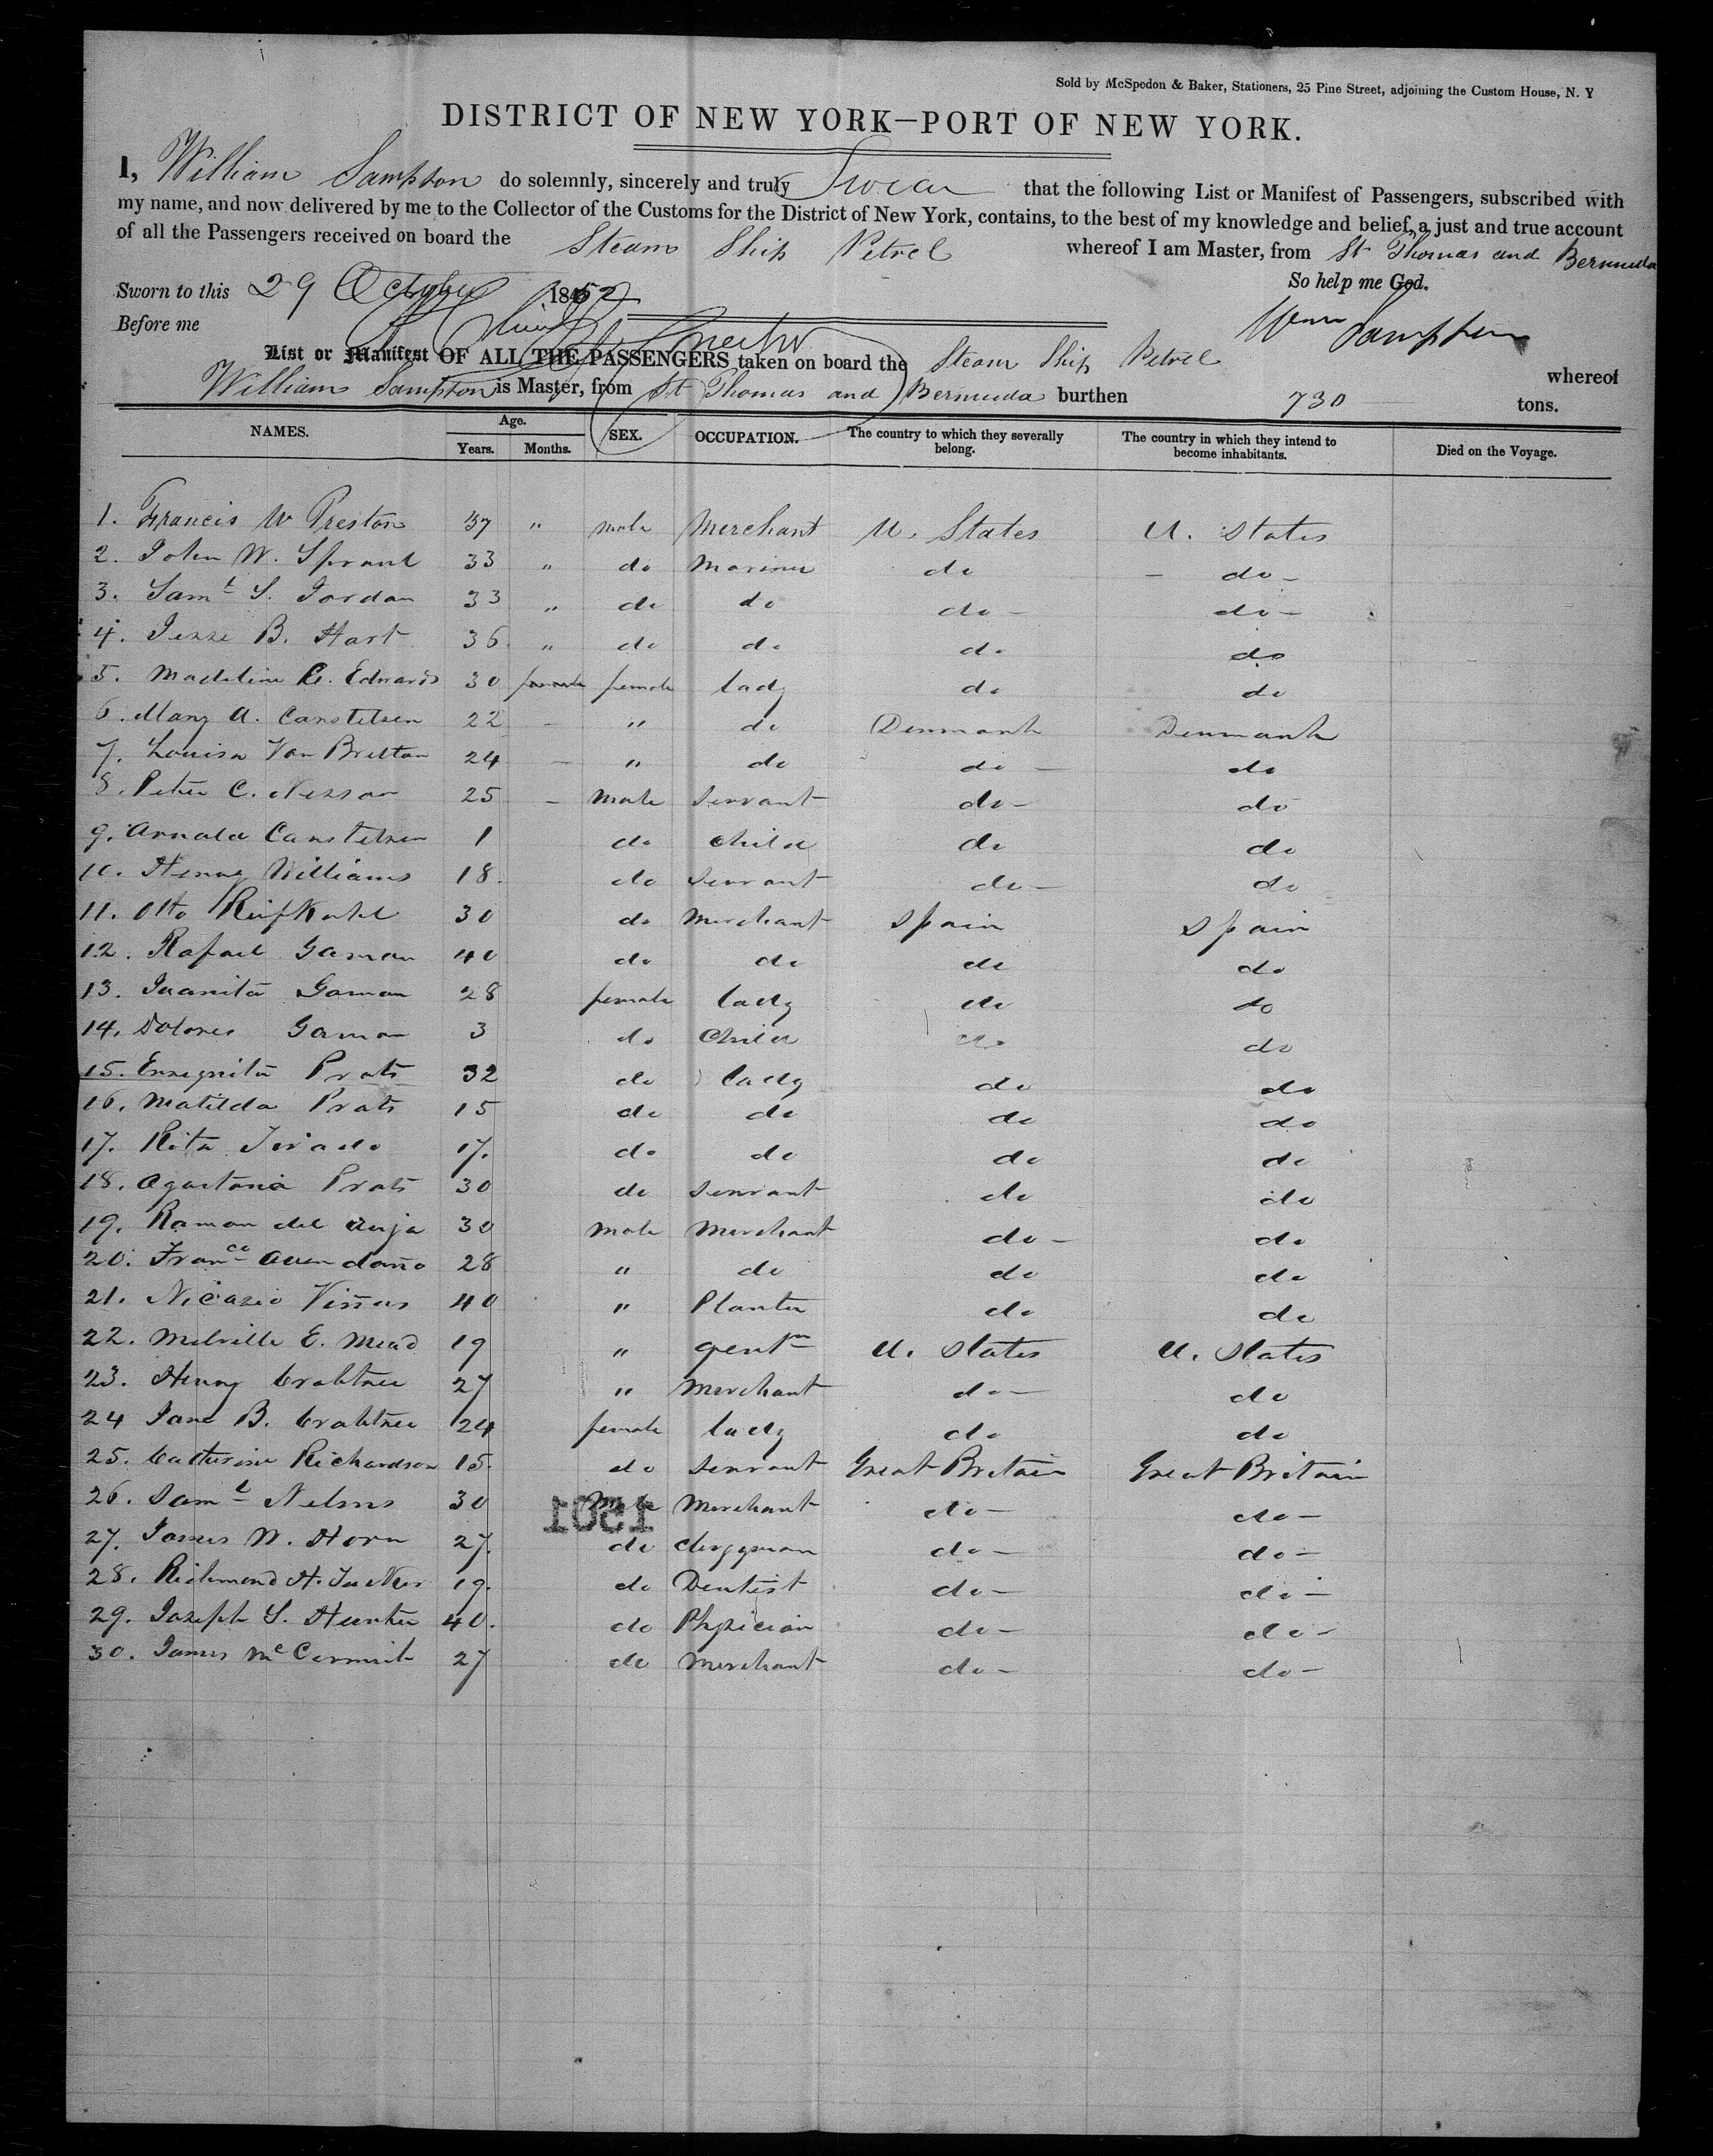 Sold by McSpedon & Baker, Stationers, 25 Pine Street, adjoining the Custom House, N. Y
DISTRICT OF NEW YORK—PORT OF NEW YORK.
I, William Sampson do solemnly, sincerely and truly Swear that the following List or Manifest of Passengers, subscribed with
my name, and now delivered by me to the Collector of the Customs for the District of New York, contains, to the best of my knowledge and belief, a just and true account
of all the Passengers received on board the Steam Ship Petrel whereof I am Master, from St Thomas and Bermuda
So help me God.
Sworn to this 29 October 1852
Before me
Wm Sampson
List or Manifest OF ALL THE PASSENGERS taken on board the Steam Ship Petrel whereof
William Sampson is Master, from St Thomas and Bermuda burthen 730 tons.
NAMES. Age. Years. Months. SEX. OCCUPATION. The country to which they severally belong. The country in which they intend to become inhabitants. Died on the Voyage.
1. Francis W Preston 37 " male Merchant U. States U. States
2. John W. 33 " do Mariner do - do -
3. Saml S. Jordan 33 " do do do - do -
4. Jesse B. Hart 36 " do do do do
5. Madeline Edwards 30 female female lady do do
6. Mary A. 22 - " do Denmark Denmark
7. Louisa Van Bretton 24 - " do do - do
8. Peter C. 25 - male Servant do - do
9. 1 do child do do
10. Henry Williams 18. do Servant do - do
11. Otto 30 do Merchant Spain Spain
12. Rafael 40 do do do do
13. Juanita 28 female lady do do
14. Dolores 3 do Child do do
15. Prats 32 do lady do do
16. Matilda Prats 15 do do do do
17. Rita 17. do do do do
18. Prats 30 do Servant do do
19. Ramon del 30 male Merchant do - do
20. Franco Avendaño 28 " do do do
21. Nicasio 40 " Planter do do
22. Melville E. Mead 19 " gentn U. States U. States
23. Henry Crabtree 27 " Merchant do - do
24 Jane B. Crabtree 24 female lady do do
25. Catherine Richardson 15. do Servant Great Britain Great Britain
26. Saml Nelms 30 Male Merchant do - do -
1501
27. James W. Horn 27. do clergyman do - do -
28. Richmond H. Tucker 19. do Dentist do - do -
29. Joseph S. Hunter 40. do Physician do - do -
30. James 27 do Merchant do - do -